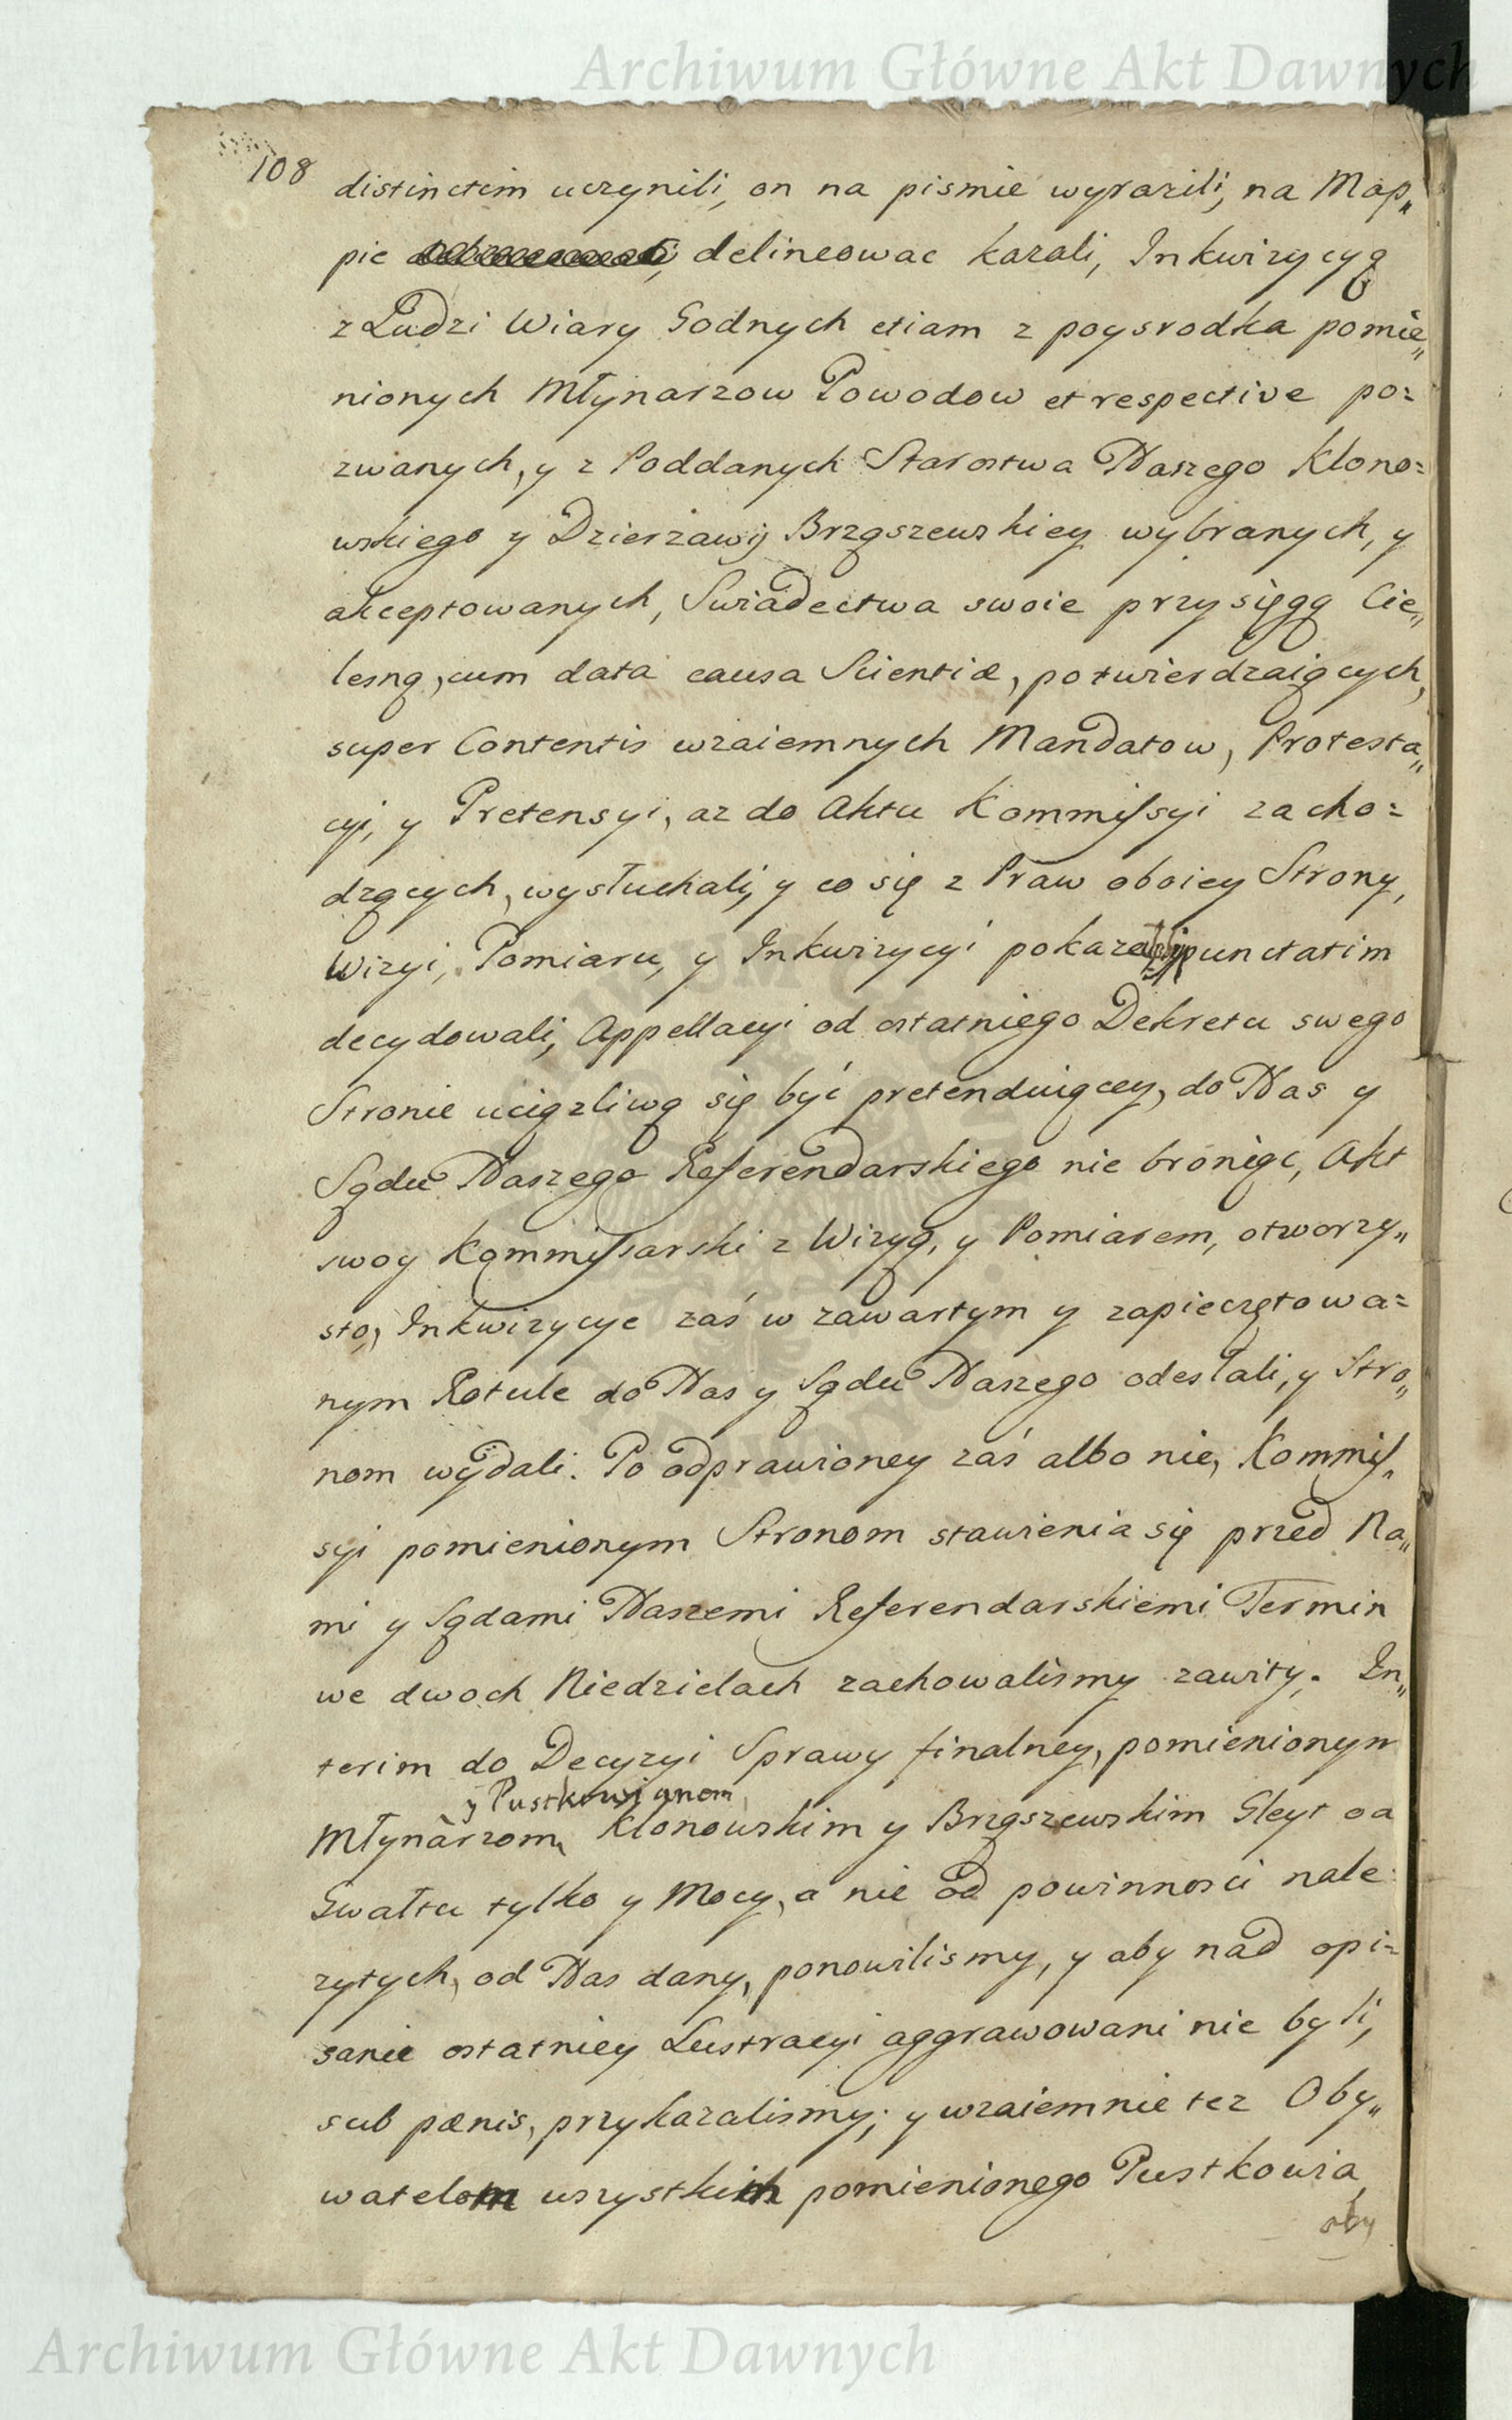 Archiwum Główne Akt Dawnych
108
distinctim uczynili, on na pismie wyrazili, na Map„
pie delineowac kazali, Inkwizycyą
z Ludzi Wiary Godnych etiam z posrodka pomie„
nionych Młynarzow Powodow et respective po=
zwanych, y z Poddanych Starostwa Naszego Klono=
wskiego y Dzierzawy Brząszewskiey wybranych, y
akceptowanych, Swiadectwa swoie przysięgą Cie„
lesną, cum data causa Scientiæ, potwierdzaiących,
super Contentis wzaiemnych Mandatow, Protesta„
cyi, y Pretensyi, az do Aktu Kommissyi zacho=
dzących, wysłuchali, y co się z Praw oboiey Strony,
Wizyi, Pomiaru, y Inkwizycyi punctatim
decydowali, Appellacyi od ostatniego Dekretu swego
Stronie uciązliwą się być pretenduiącey, do Nas y
Sądu Naszego Referendarskiego nie broniąc, Akt
swoy Kommissarski z Wizyą, y Pomiarem, otworzy„
sto, Inkwizycye zaś w zawartym y zapieczętowa=
nym Rotule do Nas y Sądu Naszego odesłali, y Stro„
nom wydali. Po odprawioney zaś albo nie, Kommis„
syi pomienionym Stronom stawienia się przed Na„
mi y Sądami Naszemi Referendarskiemi Termin
we dwoch Niedzielach zachowalismy zawity. In„
terim do Decyzyi Sprawy finalney, pomienionym
y Pustkowianom
Młynarzom Klonowskim y Brząszewskim Gleyt od
Gwałtu tylko y Mocy, a nie od powinnosci nale=
zytych, od Nas dany, ponowilismy, y aby nad opi=
sanie ostatniey Lustracyi aggrawowani nie byli,
sub pænis, przykazalismy; y wzaiemnie tez Oby„
watelom wszystkim pomienionego Pustkowia,
aby
Archiwum Główne Akt Dawnych